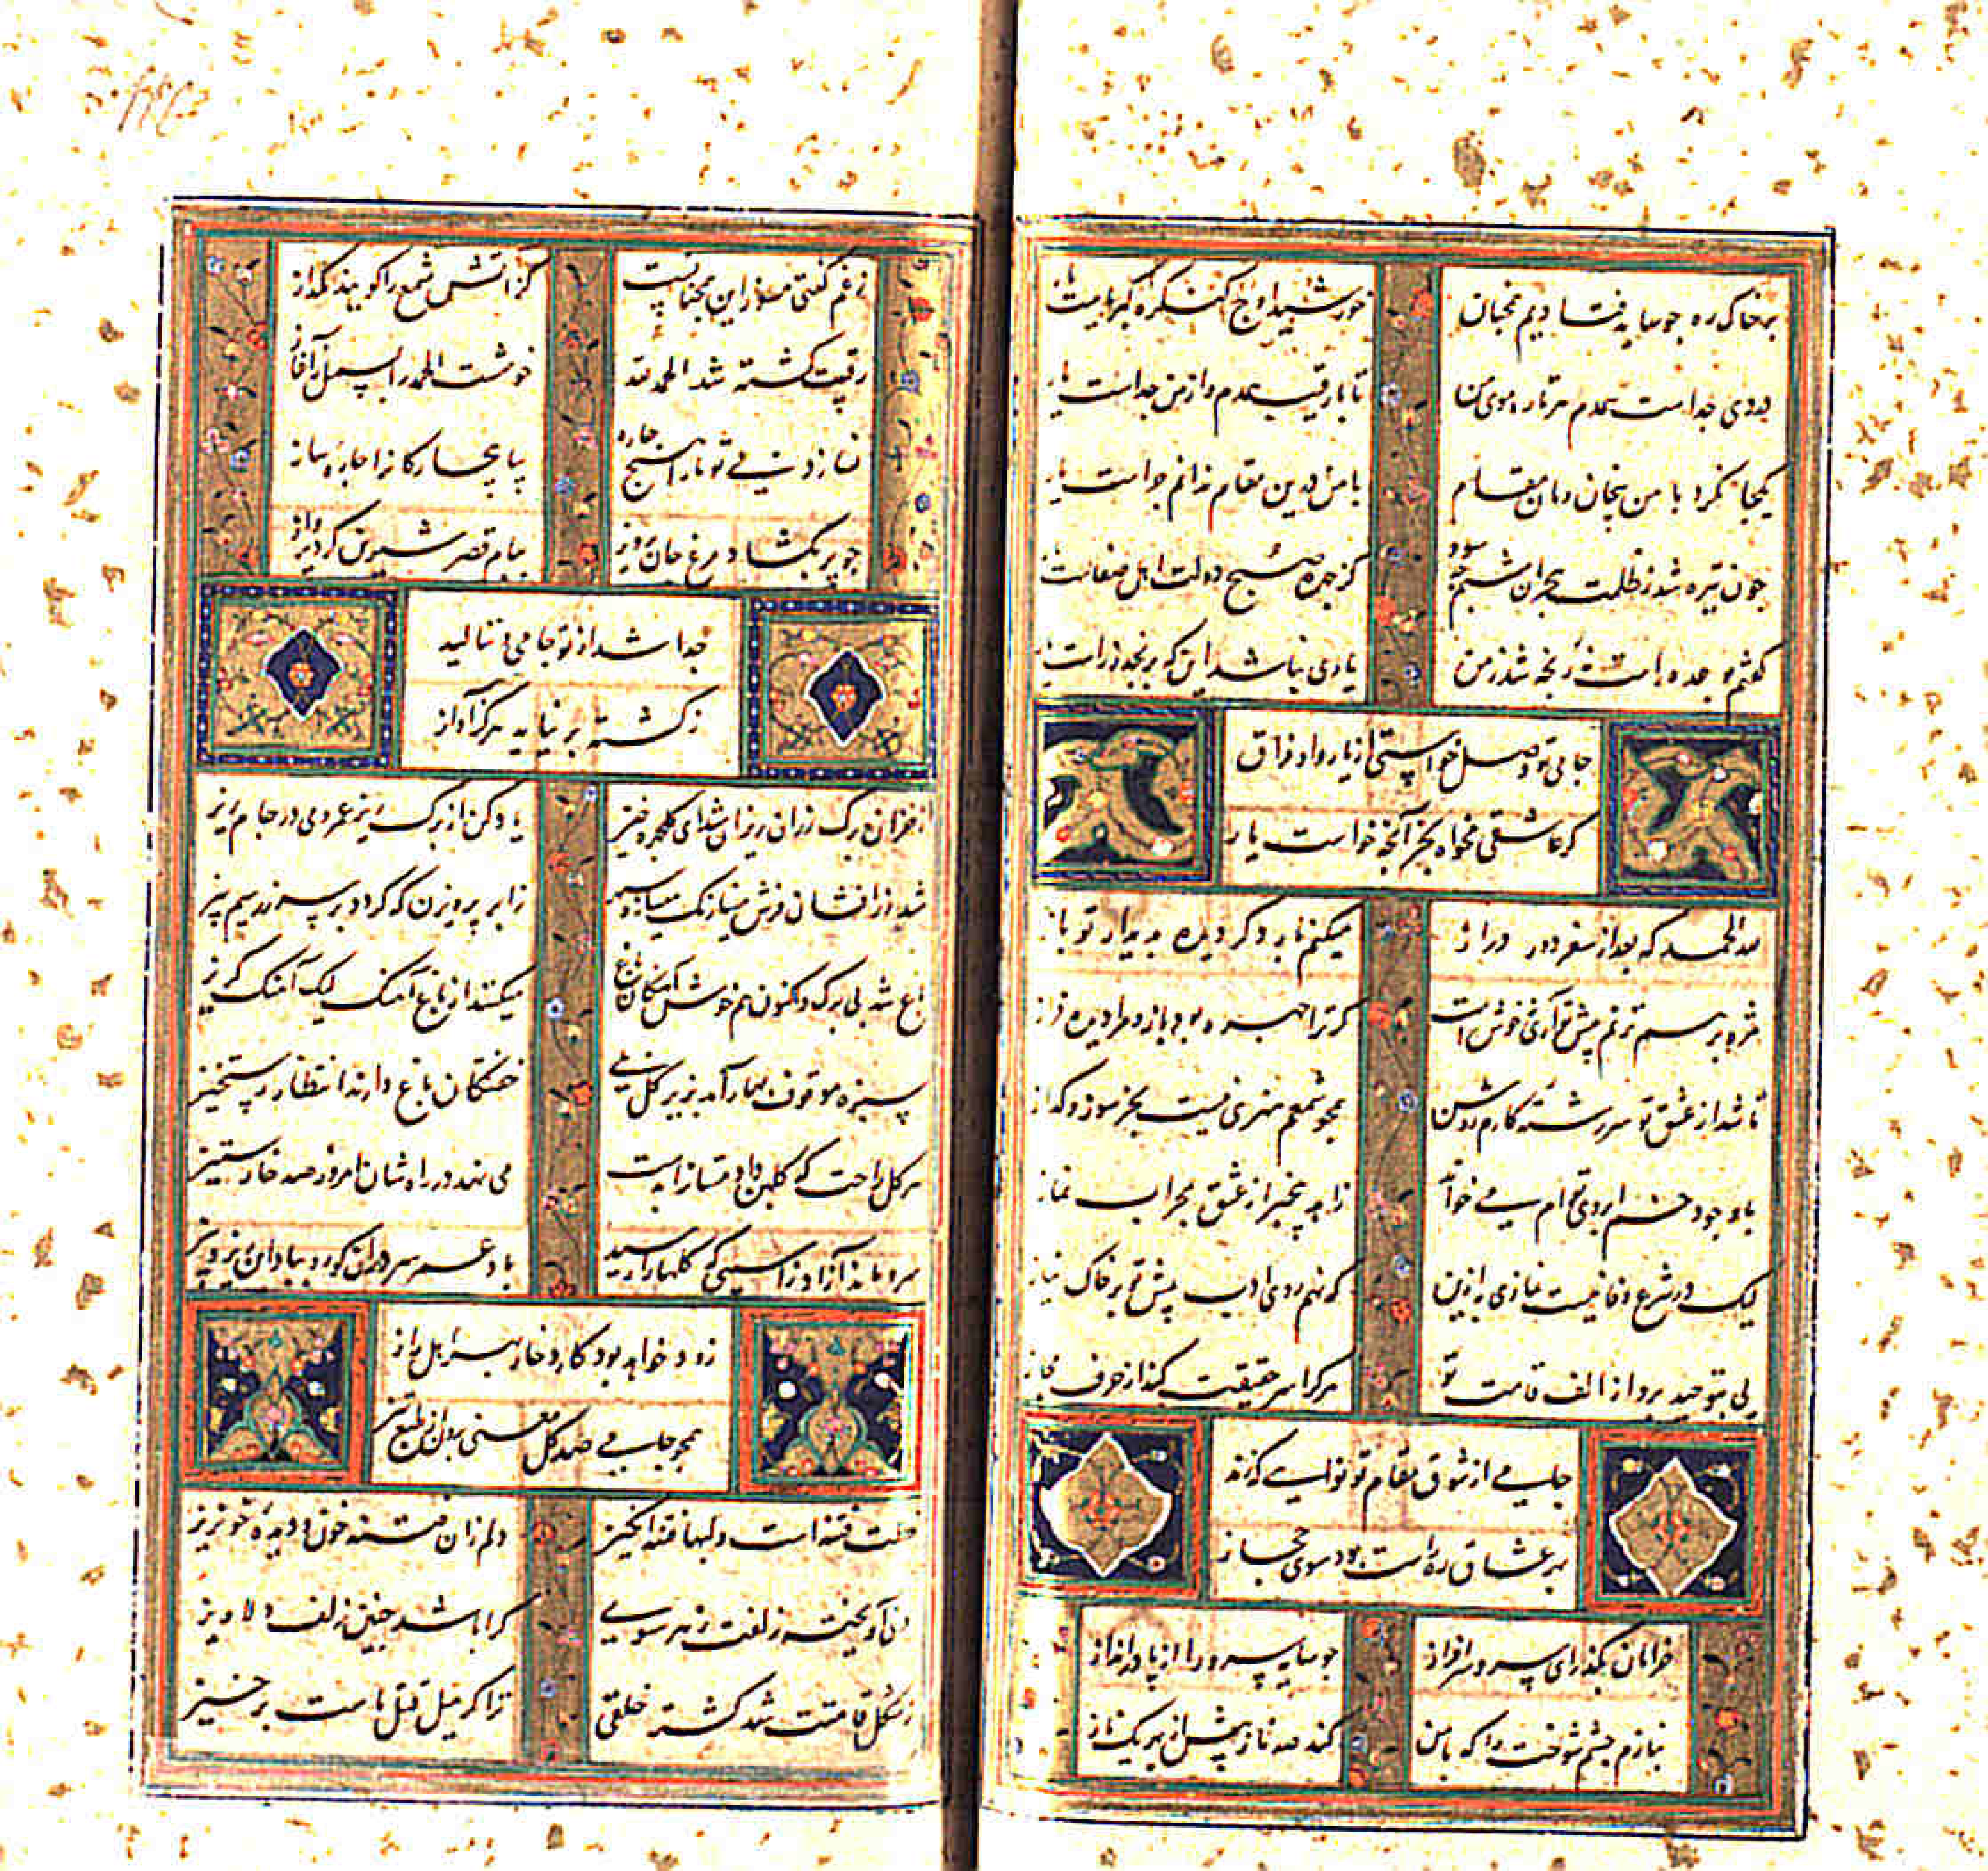 بر خاک ره چو سایه فتادیم همچنان
خورشید اوج کنگره کبریاست یار
دردی جداست همدم هر تاره موی من
تا با رقیب همدم و از من جداست یار
یکجا نکرد با من بیجان و مان مقام
با من درین مقام ندانم چراست یار
چون تیره شد ز ظلمت هجران شبم چه سود
کز چهره صبح دولت اهل صفاست یار
گفتم بوعده هات رنجه شد ز من
یاری نباشد این که برنجد ز راست یار
جامی تو وصل خواستی از یار و او فراق
گر عاشقی مخواه بجز آنچه خواست یار
لله الحمد که بعد از سفر دور دراز
میکنم بار دگر دیده بدیدار تو باز
مژه بر هم نزنم پیش تو آری خوش نیست
که ترا چهره بود باز و مرا دیده فراز
تا شد از عشق تو سررشته کارم روشن
همچو شمعم هنری نیست بجز سوز و گداز
با وجود خم ابروی تو ام می خواند
زاهد بیخبر از عشق بمحراب نماز
لیک در شرع وفا نیست نمازی به ازین
که نهم روی ادب پیش تو بر خاک نیاز
پی بتوحید برد از الف قامت تو
هر که را سر حقیقت کند از حرف مجاز
جامی از شوق مقام تو نوایی که زند
به عشاق ره راست بود سوی حجاز
خرامان بگذر ای سرو سرافراز
چو سایه سرو را از پا درانداز
بنازم چشم شوخت را که با من
کند صد ناز پیش از هر یک ناز
ز غم گفتی مسوز این همچنانست
کز آتش شمع را گویند مگداز
رقیبت کشته شد الحمد لله
خوشست الحمد را بسمل ز آغاز
ندارد بی تو ما را هیچ چاره
بیا بیچارگان را چاره ساز
چو پر بگشاد مرغ جان پرویز
ببام قصر شیرین کرد پرواز
جدا شد از تو جامی تا ننالید
ز کشته بر نیاید هرگز آواز
از خزان برگ رزان ریزان شد ای گلچهره خیز
یاد کن از برگ ریز عمر و می در جام ریز
شد زرافشان فرش مینا رنگ
ز ابر پرویزن که گردد بر سر زر سیم بیز
باغ شد بی برگ و اکنون هم خوش آهنگان باغ
میکنند از باغ آهنگ لیک آهنگ گریز
سبزه موقوف بهار آمد بزیر گل بلی
خفتگان باغ دارند انتظار رستخیز
هر گل راحت که گلبن داد مستانرا بدست
می نهد در راه شان امروز صد خار ستیز
سرو ماند آزاد از آسیبی که گلها را رسید
زود خواهد بود کارد خار بهر اهل راز
همچو جامی صد گل معنی برون از طبع تیز
خطت فتنه است و لبها فتنه انگیز
دلم زان فتنه خون و دیده خونریز
دل آویخته زلفت ز هر سویی
کرا باشد چنین زلف دلاویز
ز شکل قامتت شد کشته خلقی
ترا گر میل قتل ماست برخیز